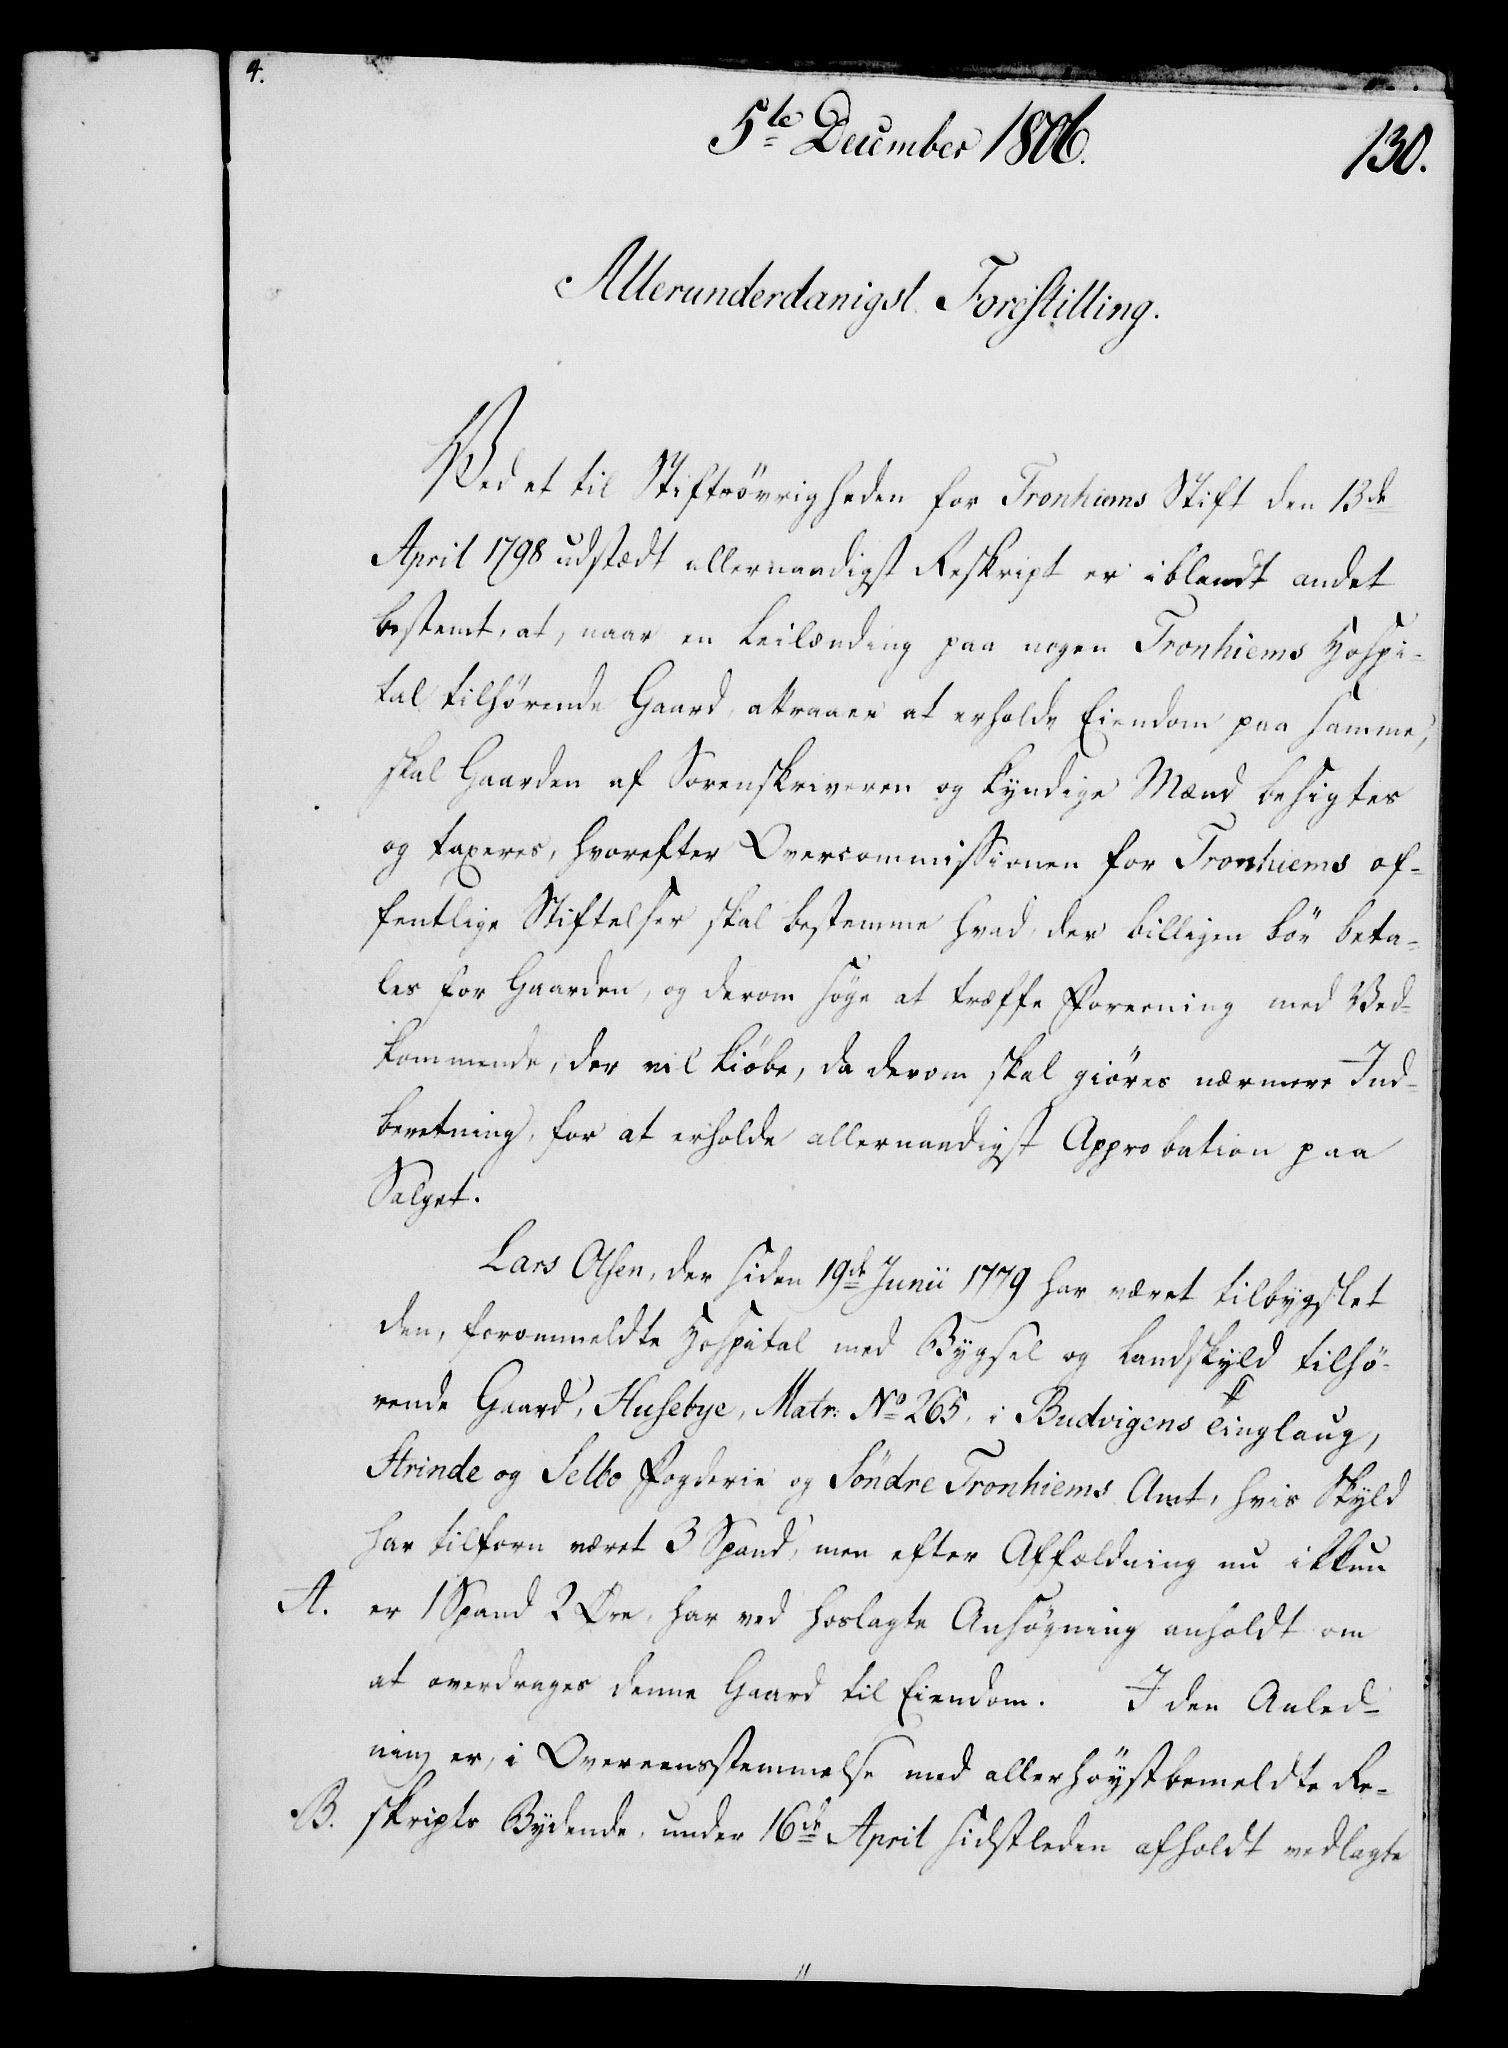 4.
5te December 1806.
130.
Allerunderdanigst Forestilling.
Ved et til Stiftsövrigheden for Tronhiems Stift den 13de
April 1798 udstædt allernaadigst Reskript er iblandt andet
bestemt, at, naar en Leilænding paa nogen Tronhiems Hospi-
tal tilhörende Gaard, attraaer at erholde Eiendom paa samme,
skal Gaarden af Sorenskriveren og kyndige Mænd besigtes
og taxeres, hvorefter Overcommissionen for Tronhiems of-
fentlige Stiftelser skal bestemme hvad der billigen bör beta-
les for Gaarden, og derom söge at træffe Foreening med Ved-
kommende, der vil kiöbe, da derom skal giöres nærmere Ind-
beretning, for at erholde allernaadigst Approbation paa
Salget.
Lars Olsen, der siden 19de Junii 1779 har været tilbygslet
den, forommeldte Hospital med Bygsel og Landskyld tilhö-
rende Gaard, Husebye, Matr: No 265, i Budvigens Tinglaug,
Strinde og Selbo Fogderie og Söndre Tronhiems Amt, hvis Skyld
har tilforn været 3 Spand, men efter Affældning nu ikkun
A. er 1 Spand 2 Öre, har ved hoslagte Ansögning anholdt om
at overdrages denne Gaard til Eiendom. I den Anled-
ning er, i Overeensstemmelse med allerhöystbemeldte Re-
B. skripts Bydende, under 16de April sidstleden afholdt vedlagte